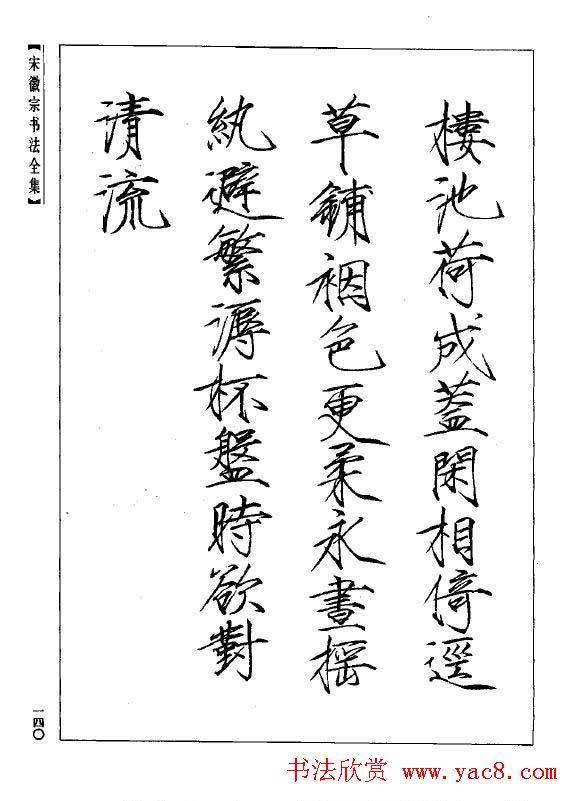 樓池荷成蓋閑相倚逕
草鋪裀色更柔永晝摇
紈避繁溽杯盤時欲對
清流
【宋徽宗书法全集】
一四〇
书法欣赏 www.yac8.com